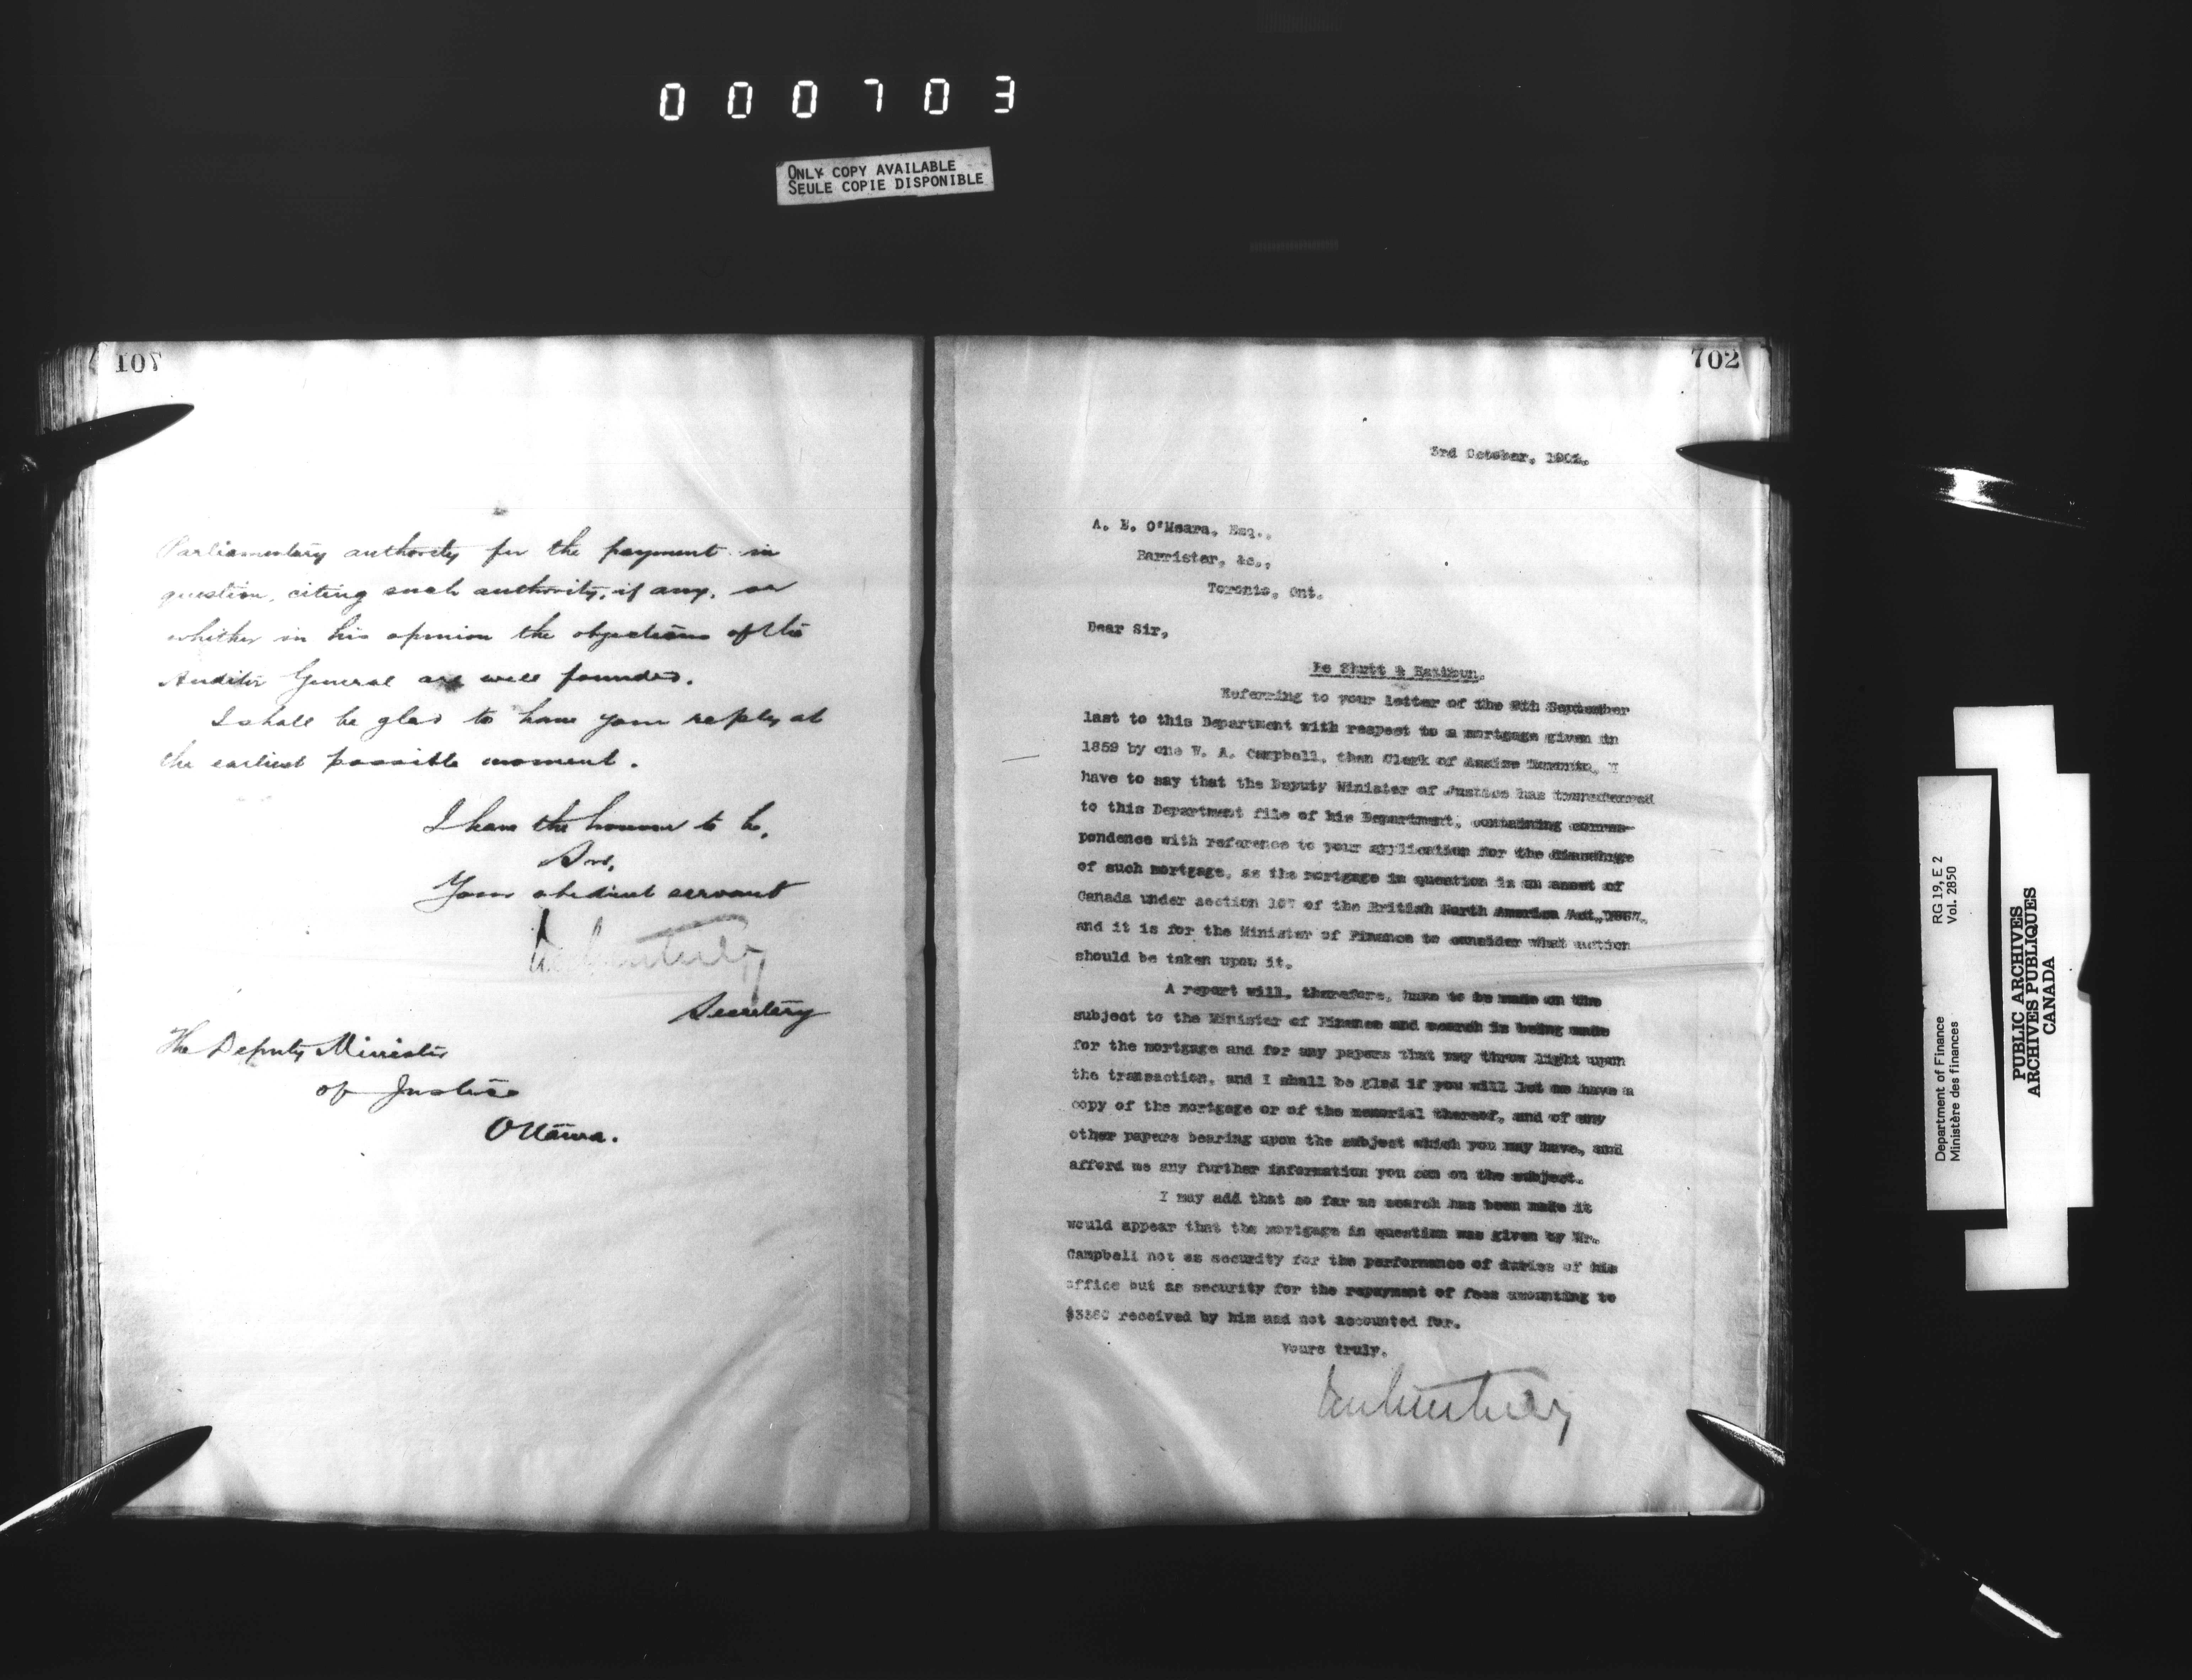 000703
ONLY COPY AVAILABLE
SEULE COPIE DISPONIBLE
701
Parliamentary authority for the payment in
question, citing such authority, if any, or
whether in his opinion the objections of the
Auditor General are well founded.
I shall be glad to have your reply at
the earliest possible moment.
I have the honour to be,
Sir,
Your obedient servant
Secretary
The Deputy Minister
of Justice
Ottawa.
702
3rd October, 1902.
A. E. O'Meara, Esq.,
Barrister, &c.,
Toronto, Ont.
Dear Sir,
Re Shutt &
Referring to your letter of the September
last to this Department with respect to a mortgage given in
1859 by one W. A. Campbell, then Clerk of Assize Toronto, I
have to say that the Deputy Minister of Justice has transferred
to this Department file of his Department, containing corres-
pondence with reference to your application for the discharge
of such mortgage, as the mortgage in question is an asset of
Canada under section 107 of the British North America Act, 1867,
and it is for the Minister of Finance to consider what action
should be taken upon it.
A report will, therefore, have to be made on the
subject to the Minister of Finance and search is being made
for the mortgage and for any papers that may throw light upon
the transaction, and I shall be glad if you will let me have a
copy of the mortgage or of the memorial thereof, and of any
other papers bearing upon the subject which you may have, and
afford me any further information you can on the subject.
I may add that so far as search has been made it
would appear that the mortgage in question was given by Mr.
Campbell not as security for the performance of duties of his
office but as security for the repayment of fees amounting to
received by him and not accounted for.
Yours truly,
Department of Finance
Ministère des finances
RG 19, E 2
Vol. 2850
PUBLIC ARCHIVES
ARCHIVES PUBLIQUES
CANADA